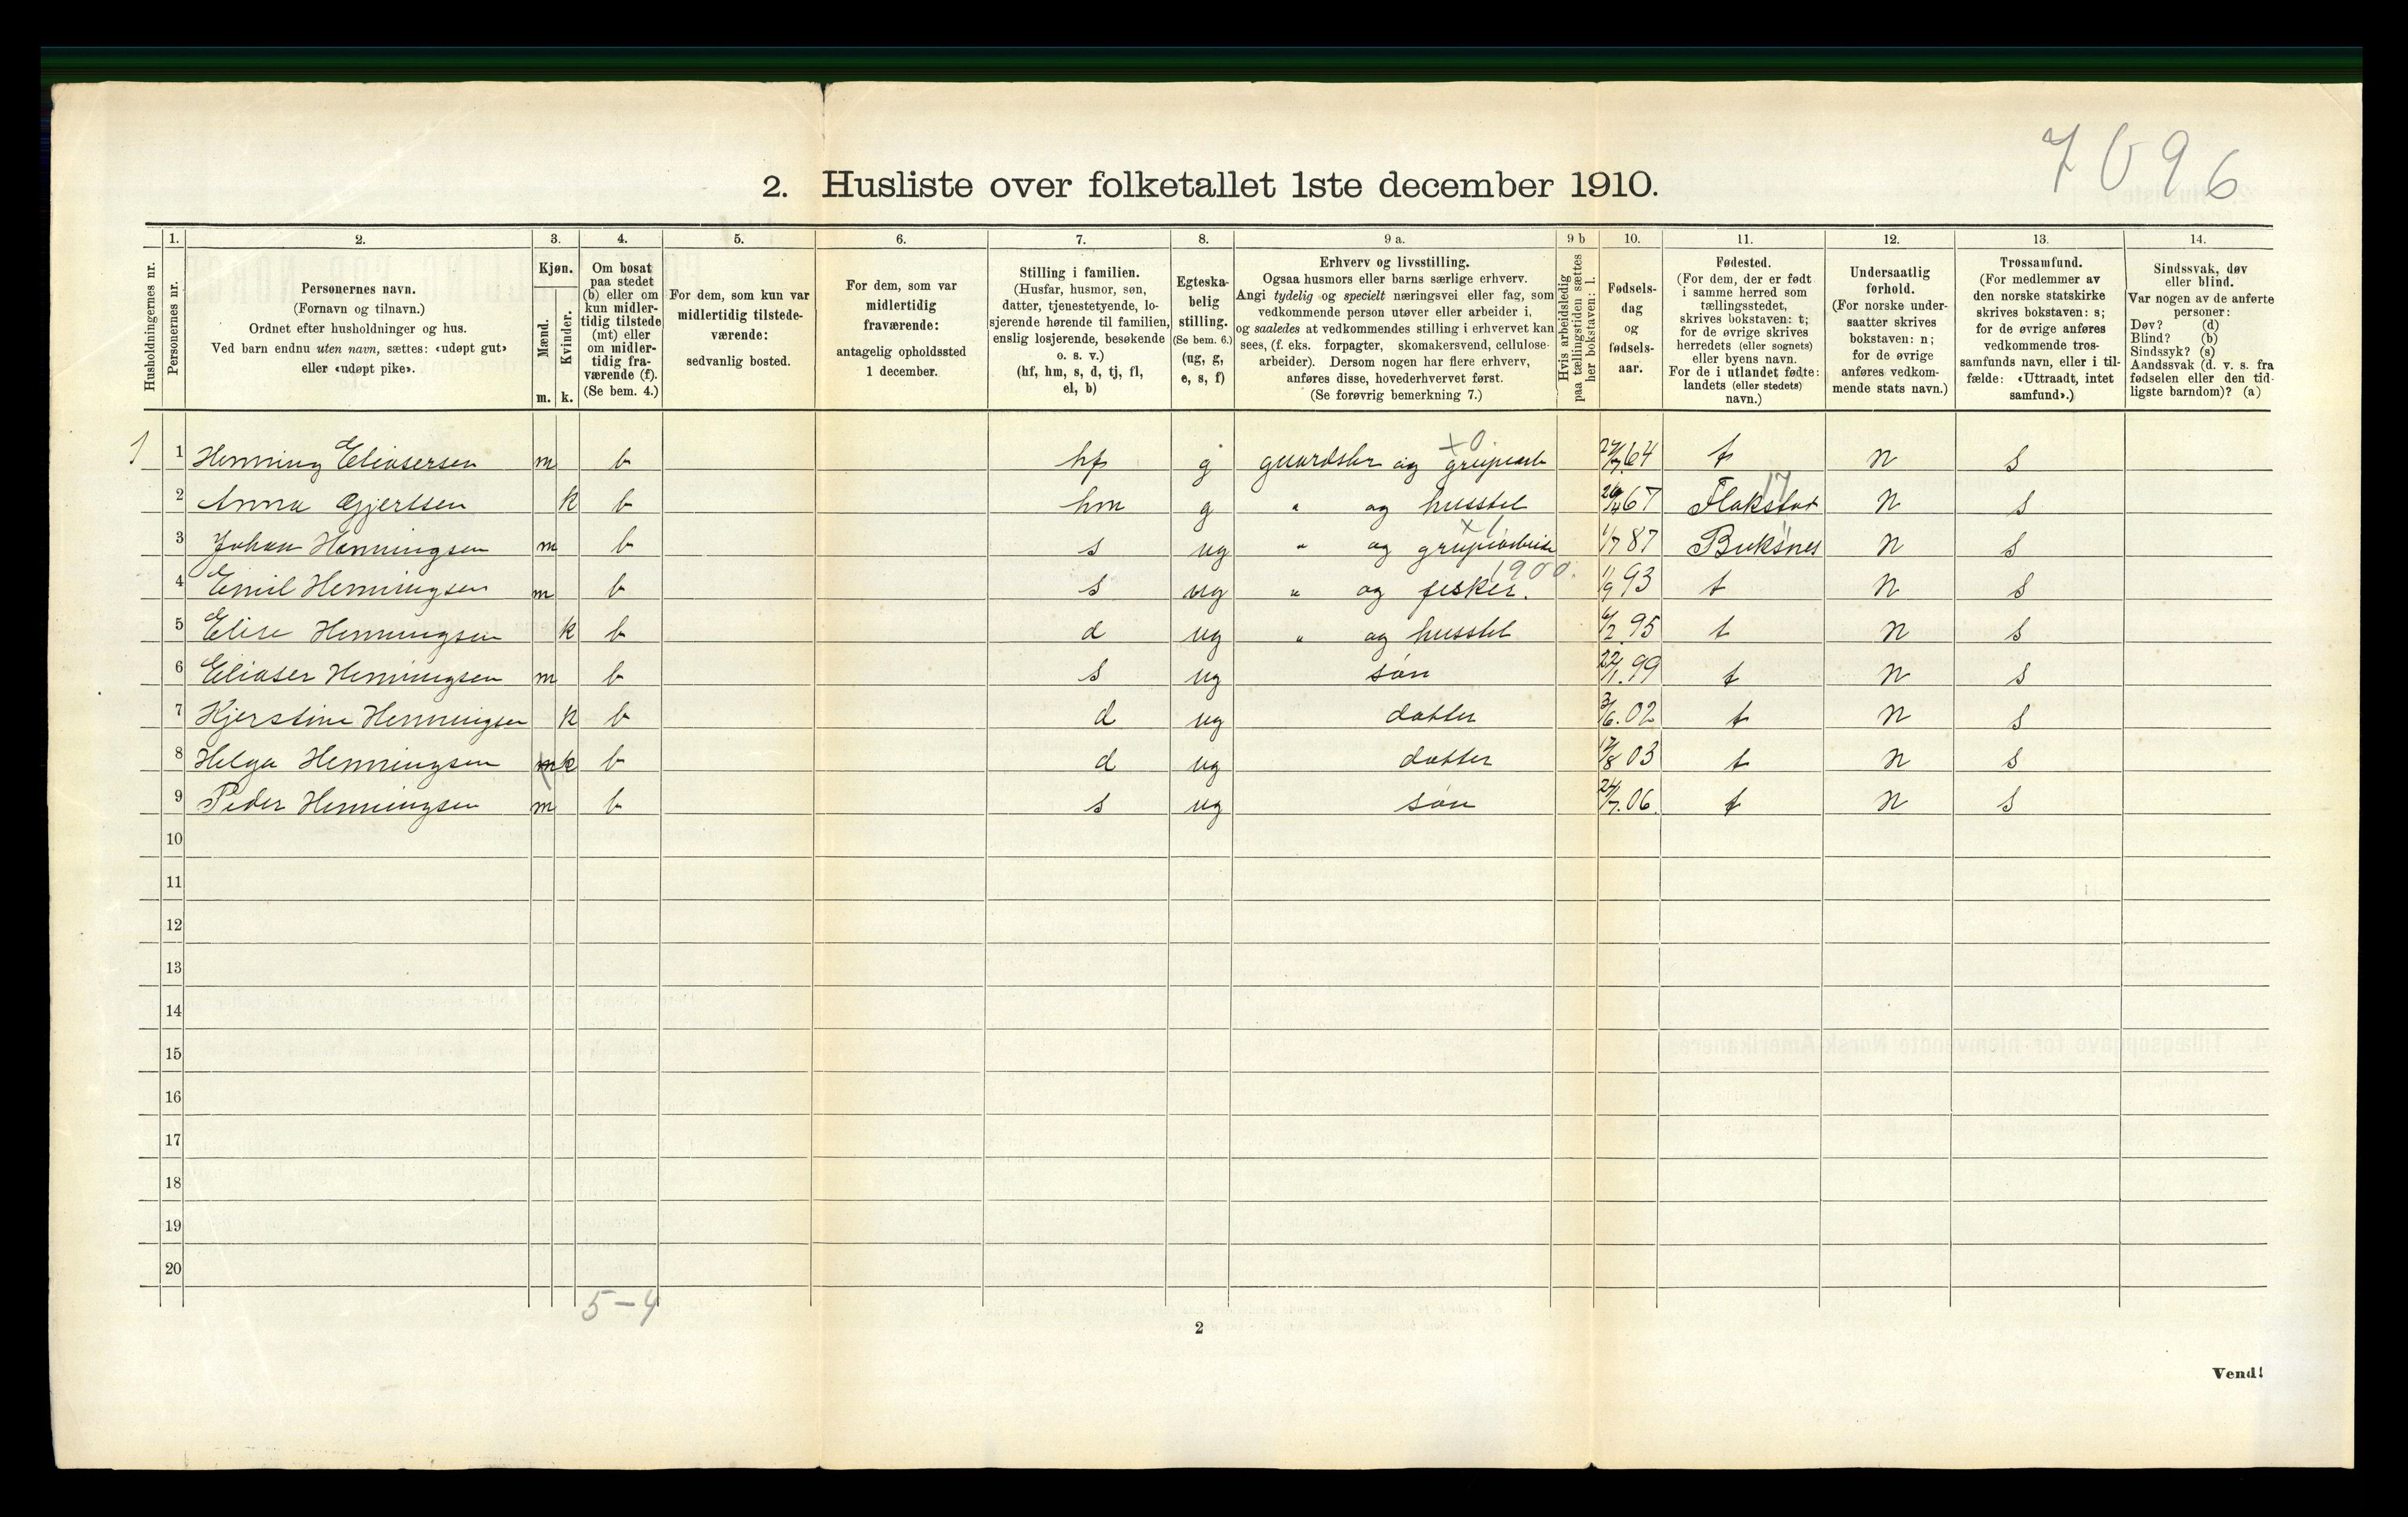 7096
2. Husliste over folketallet 1ste december 1910.
Husholdningernes nr.
1.
Personernes nr.
2.
Personernes navn.
(Fornavn og tilnavn.)
Ordnet efter husholdninger og hus.
Ved barn endnu uten navn, sættes: «udøpt gut»
eller «udøpt pike».
3.
Kjøn.
Mænd.
Kvinder.
m. k.
4.
Om bosat
paa stedet
(b) eller om
kun midler-
tidig tilstede
(mt) eller
om midler-
tidig fra-
værende (f).
(Se bem. 4.)
5.
For dem, som kun var
midlertidig tilstede-
værende:
sedvanlig bosted.
6.
For dem, som var
midlertidig
fraværende:
antagelig opholdssted
1 december.
7.
Stilling i familien.
(Husfar, husmor, søn,
datter, tjenestetyende, lo-
sjerende hørende til familien,
enslig losjerende, besøkende
o. s. v.)
(hf, hm, s, d, tj, fl,
el, b)
8.
Egteska-
belig
stilling.
(Se bem. 6.)
(ug, g,
e, s, f)
9 a.
Erhverv og livsstilling.
Ogsaa husmors eller barns særlige erhverv.
Angi tydelig og specielt næringsvei eller fag, som
vedkommende person utøver eller arbeider i,
og saaledes at vedkommendes stilling i erhvervet kan
sees, (f. eks. forpagter, skomakersvend, cellulose-
arbeider). Dersom nogen har flere erhverv,
anføres disse, hovederhvervet først.
(Se forøvrig bemerkning 7.)
9 b
Hvis arbeidsledig
paa tællingstiden sættes
her bokstaven: l.
10.
Fødsels-
dag
og
fødsels-
aar.
11.
Fødested.
(For dem, der er født
i samme herred som
tællingsstedet,
skrives bokstaven: t;
for de øvrige skrives
herredets (eller sognets)
eller byens navn.
For de i utlandet fødte:
landets (eller stedets)
navn.)
12.
Undersaatlig
forhold.
(For norske under-
saatter skrives
bokstaven: n;
for de øvrige
anføres vedkom-
mende stats navn.)
13.
Trossamfund.
(For medlemmer av
den norske statskirke
skrives bokstaven: s;
for de øvrige anføres
vedkommende tros-
samfunds navn, eller i til-
fælde: «Uttraadt, intet
samfund».)
14.
Sindssvak, døv
eller blind.
Var nogen av de anførte
personer:
Døv? (d)
Blind? (b)
Sindssyk? (s)
Aandssvak (d. v. s. fra
fødselen eller den tid-
ligste barndom)? (a)
x0
1 1 Henning Eliasersen m b hf g og 64 t n s
17
2 Anna Gjertsen k b hm g " og husstel 67 Flakstad n s
x1 "
3 Johan Henningsen m b s ug " og 1/7 87 Buksnes n s
1900.
4 Emil Henningsen m b s ug " og fisker. 11/9 93 t n s
5 Elise Henningsen k b d ug " og husstel 6/2 95 t n s
6 Eliaser Henningsen m b s ug søn 22/1 99 t n s
7 Kjerstine Henningsen k b d ug datter 3/6. 02 t n s
8 Helga Henningsen m k b d ug datter 03 t n s
9 Peder Henningsen m b s ug søn 24/7. 06. t n s
10
11
12
13
14
15
16
17
18
19
20
5 – 4
2
Vend!